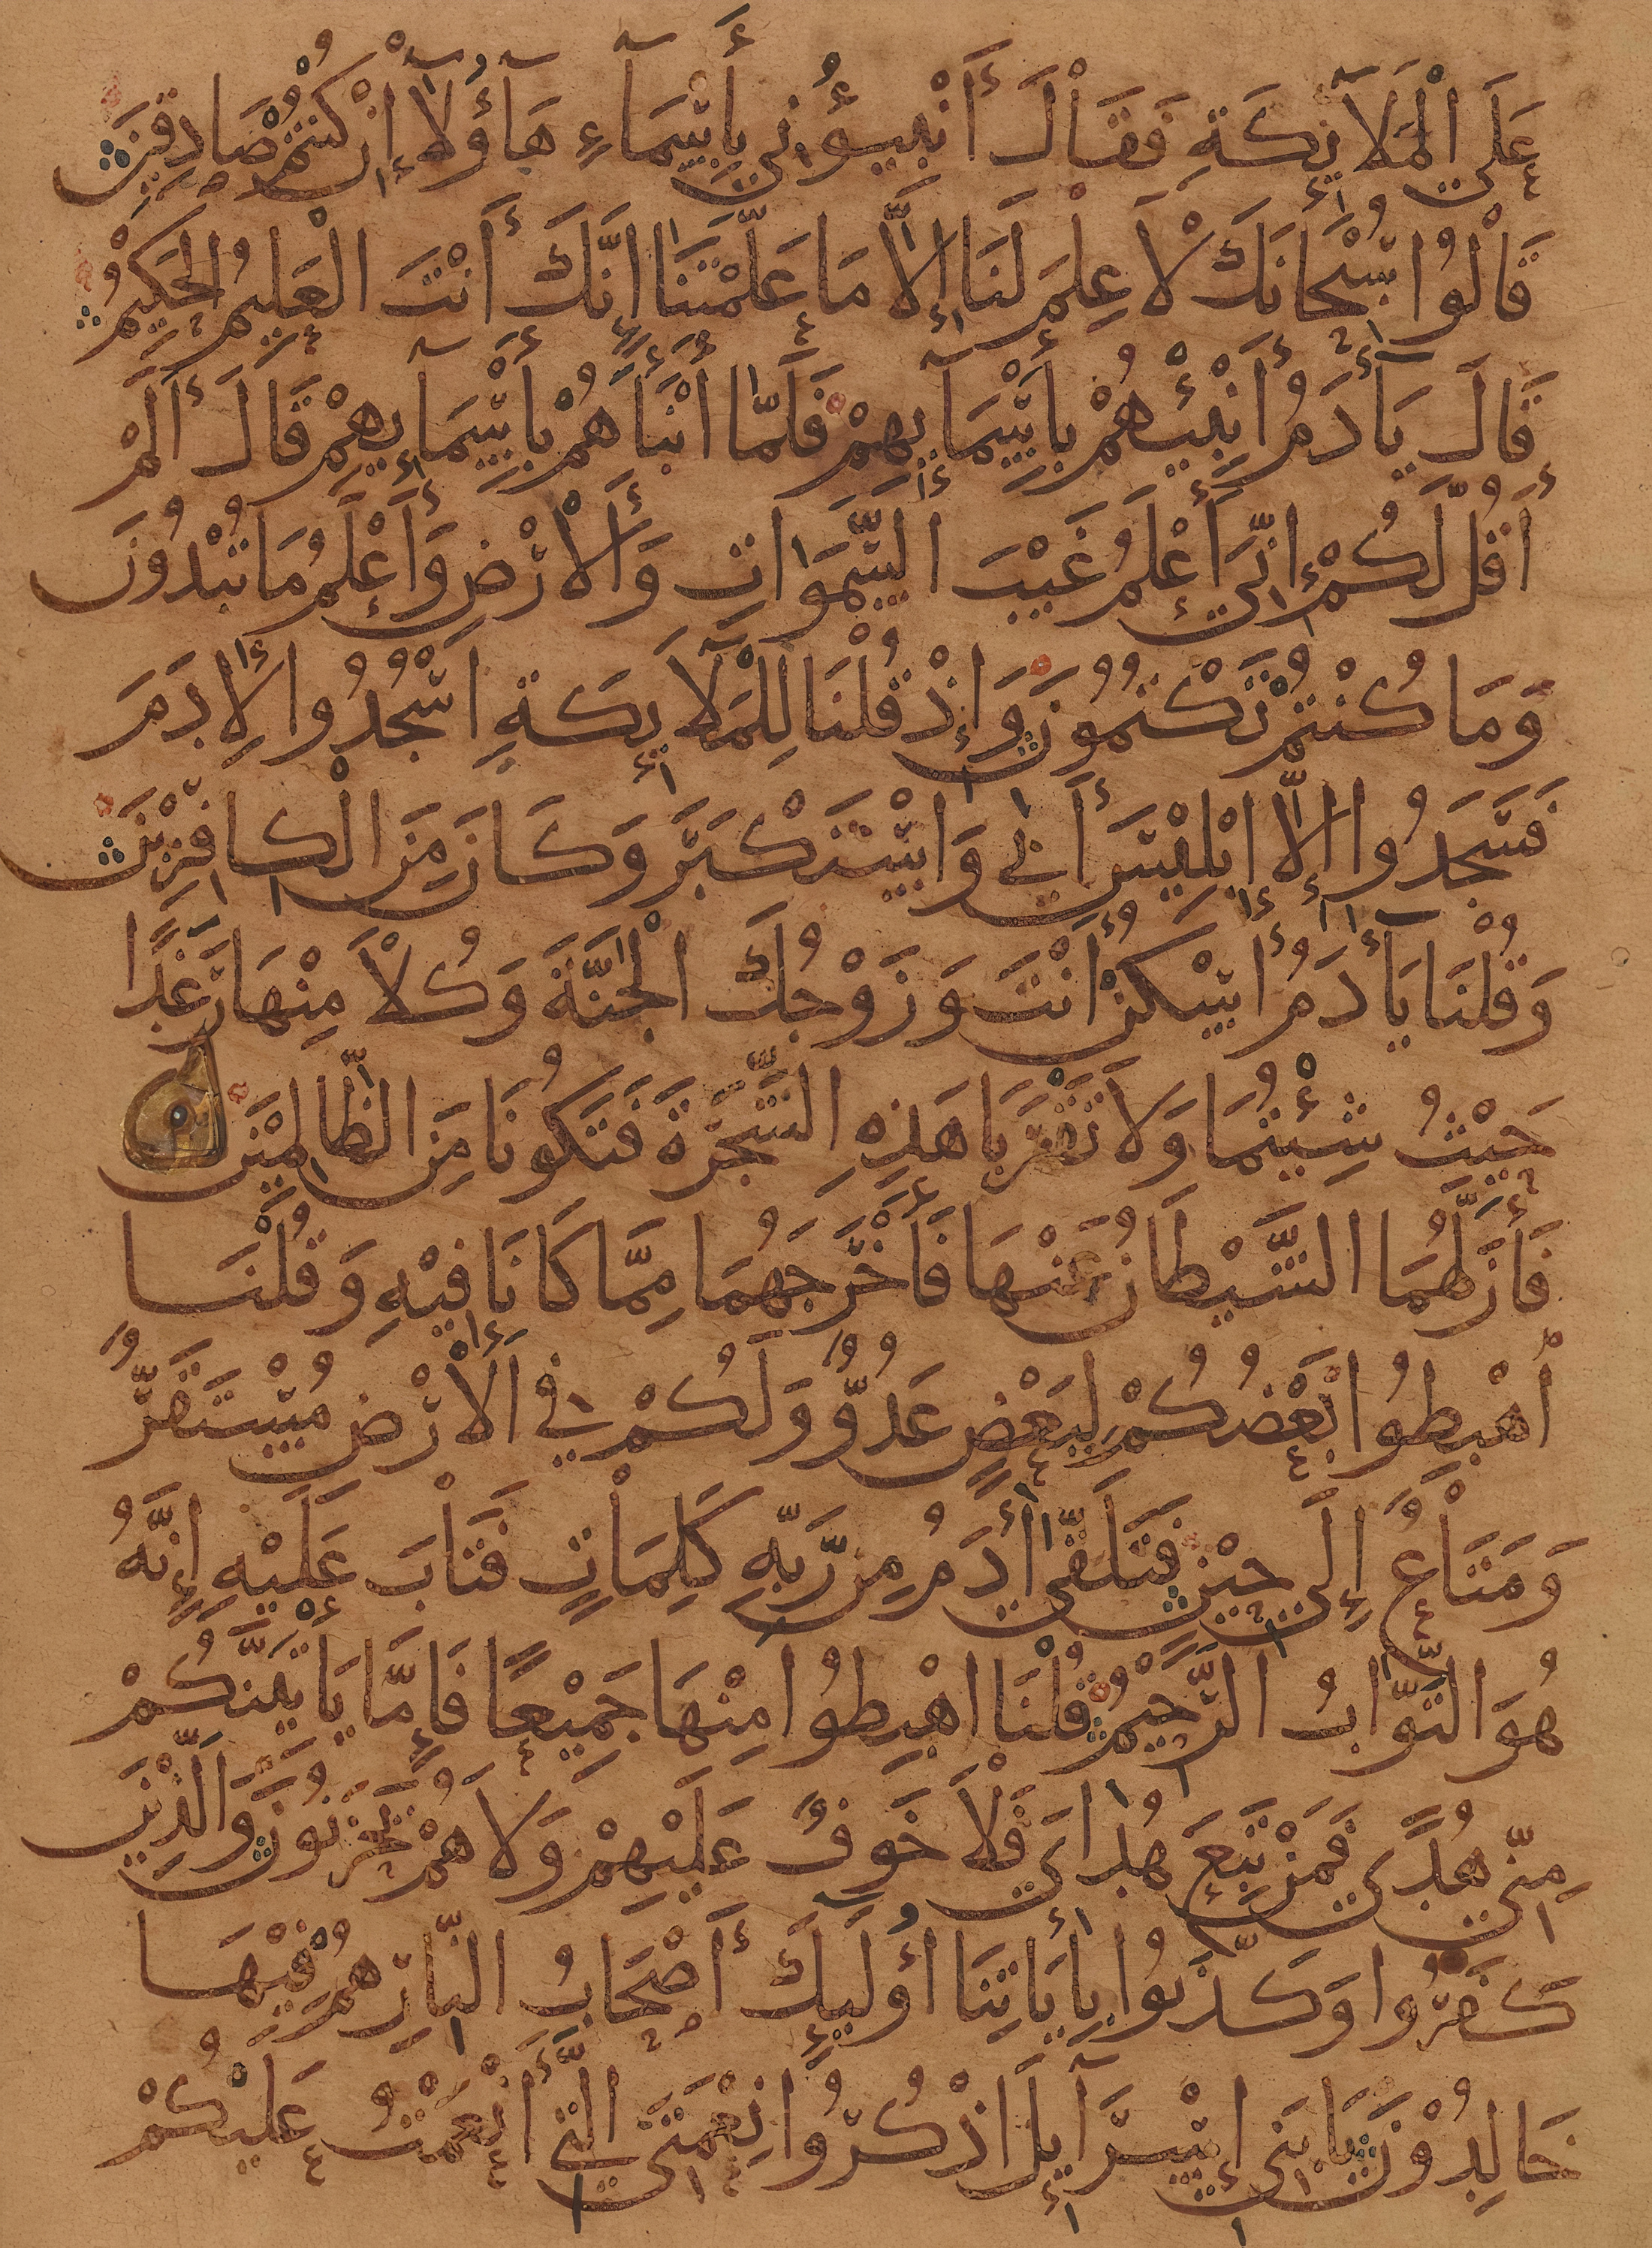 عَلَى الْمَلَآئِكَةِ فَقَالَ أَنْبِيؤُنِي بِأَسْمَآءِ هَآؤُلَآ إِنْ كُنْتُمْ صَادِقِينَ
قَالُوا سُبْحَانَكَ لَا عِلْمَ لَنَا إِلَّا مَا عَلَّمْتَنَا إِنَّكَ أَنْتَ الْعَلِيمُ الْحَكِيمُ
قَالَ يَآأَدَمُ أَنْبِئْهُمْ بِأَسْمَآئِهِمْ فَلَمَّا أَنْبَأَهُمْ بِأَسْمَآئِهِمْ قَالَ أَلَمْ
أَقُل لَّكُمْ إِنِّي أَعْلَمُ غَيْبَ السَّمَوَاتِ وَالْأَرْضِ وَأَعْلَمُ مَا تُبْدُونَ
وَمَا كُنْتُمْ تَكْتُمُونَ وَإِذْ قُلْنَا لِلْمَلَآئِكَةِ اسْجُدُوا لِأَدَمَ
فَسَجَدُوا إِلَّا إِبْلِيْسَ أَبَى وَاسْتَكْبَرَ وَكَانَ مِنَ الْكَافِرِيْنَ
وَقُلْنَا يَآأَدَمُ اسْكُنْ أَنْتَ وَزَوْجُكَ الْجَنَّةَ وَكُلَا مِنْهَا رَغَدًا
حَيْثُ شِئْتُمَا وَلَا تَقْرَبَا هَذِهِ الشَّجَرَةَ فَتَكُونَا مِنَ الظَّالِمِيْنَ
فَأَزَلَّهُمَا الشَّيْطَانُ عَنْهَا فَأَخْرَجَهُمَا مِمَّا كَانَا فِيْهِ وَقُلْنَا
اهْبِطُوا بَعْضُكُمْ لِبَعْضٍ عَدُوٌّ وَلَكُمْ فِي الْأَرْضِ مُسْتَقَرٌّ
وَمَتَاعٌ إِلَى حِيْنٍ فَتَلَقَّى أَدَمُ مِن رَّبِّهِ كَلِمَاتٍ فَتَابَ عَلَيْهِ إِنَّهُ
هُوَ التَّوَّابُ الرَّحِيْمُ قُلْنَا اهْبِطُوا مِنْهَا جَمِيْعًا فَإِمَّا يَأْتِيَنَّكُمْ
مِنِّي هُدًى فَمَنْ تَبِعَ هُدَايَ فَلَا خَوْفٌ عَلَيْهِمْ وَلَا هُمْ يَحْزَنُونَ وَالَّذِيْنَ
كَفَرُوا وَكَذَّبُوا بِأَيَاتِنَا أُولَئِكَ أَصْحَابُ النَّارِ هُمْ فِيْهَا
خَالِدُوْنَ يَا بَنِي إِسْرَآئِيلَ اذْكُرُوا نِعْمَتِيَ الَّتِي أَنْعَمْتُ عَلَيْكُمْ